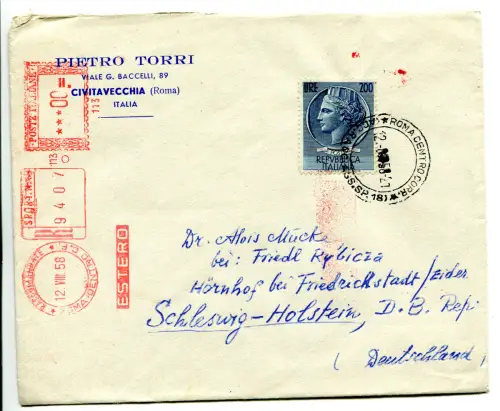 PIETRO TORRI
VIALE G. BACCELLI, 89
CIVITAVECCHIA (Roma)
ITALIA
POSTE ITALIANE
***00
113
113
9407
12.VIII.58
ESTERO
LIRE 200
REPVBBLICA
ITALIANA
ROMA CENTRO CORR.
Dr. Alois Mücke
bei: Friedl Rybicza
Hörnhof bei Friedrichstadt/Eider
Schleswig-Holstein, D. B. Rep.
(Deutschland)